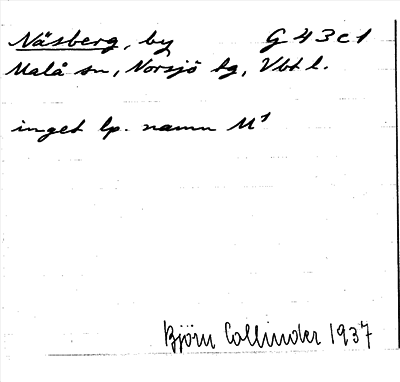 Näsberg, by G 43 c 1
Malå sn, Norsjö tg, Vbt l.
inget lp. namn M¹
Björn Collinder 1937